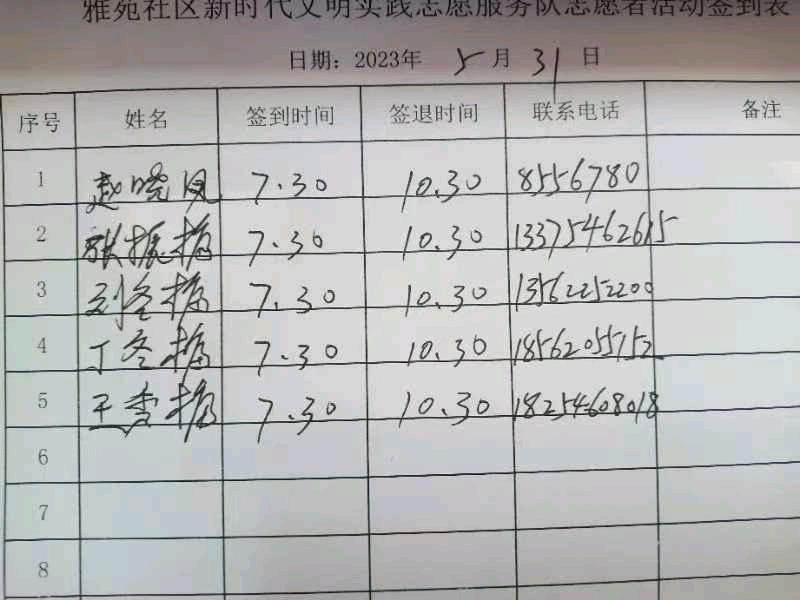 雅苑社区新时代文明实践志愿服务队志愿者活动签到表
日期：2023年 5 月 31 日
序号 姓名 签到时间 签退时间 联系电话 备注
1 赵晓凤 7.30 10.30 8556780
2 张振梅 7.30 10.30 13375462615
3 刘冬梅 7.30 10.30 13562252200
4 丁冬梅 7.30 10.30 18562055752
5 王李梅 7.30 10.30 18254608018
6
7
8